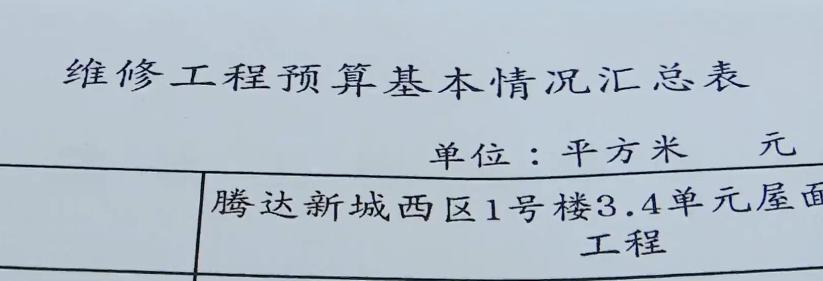 维修工程预算基本情况汇总表
单位：平方米 元
腾达新城西区1号楼3.4单元屋面
工程